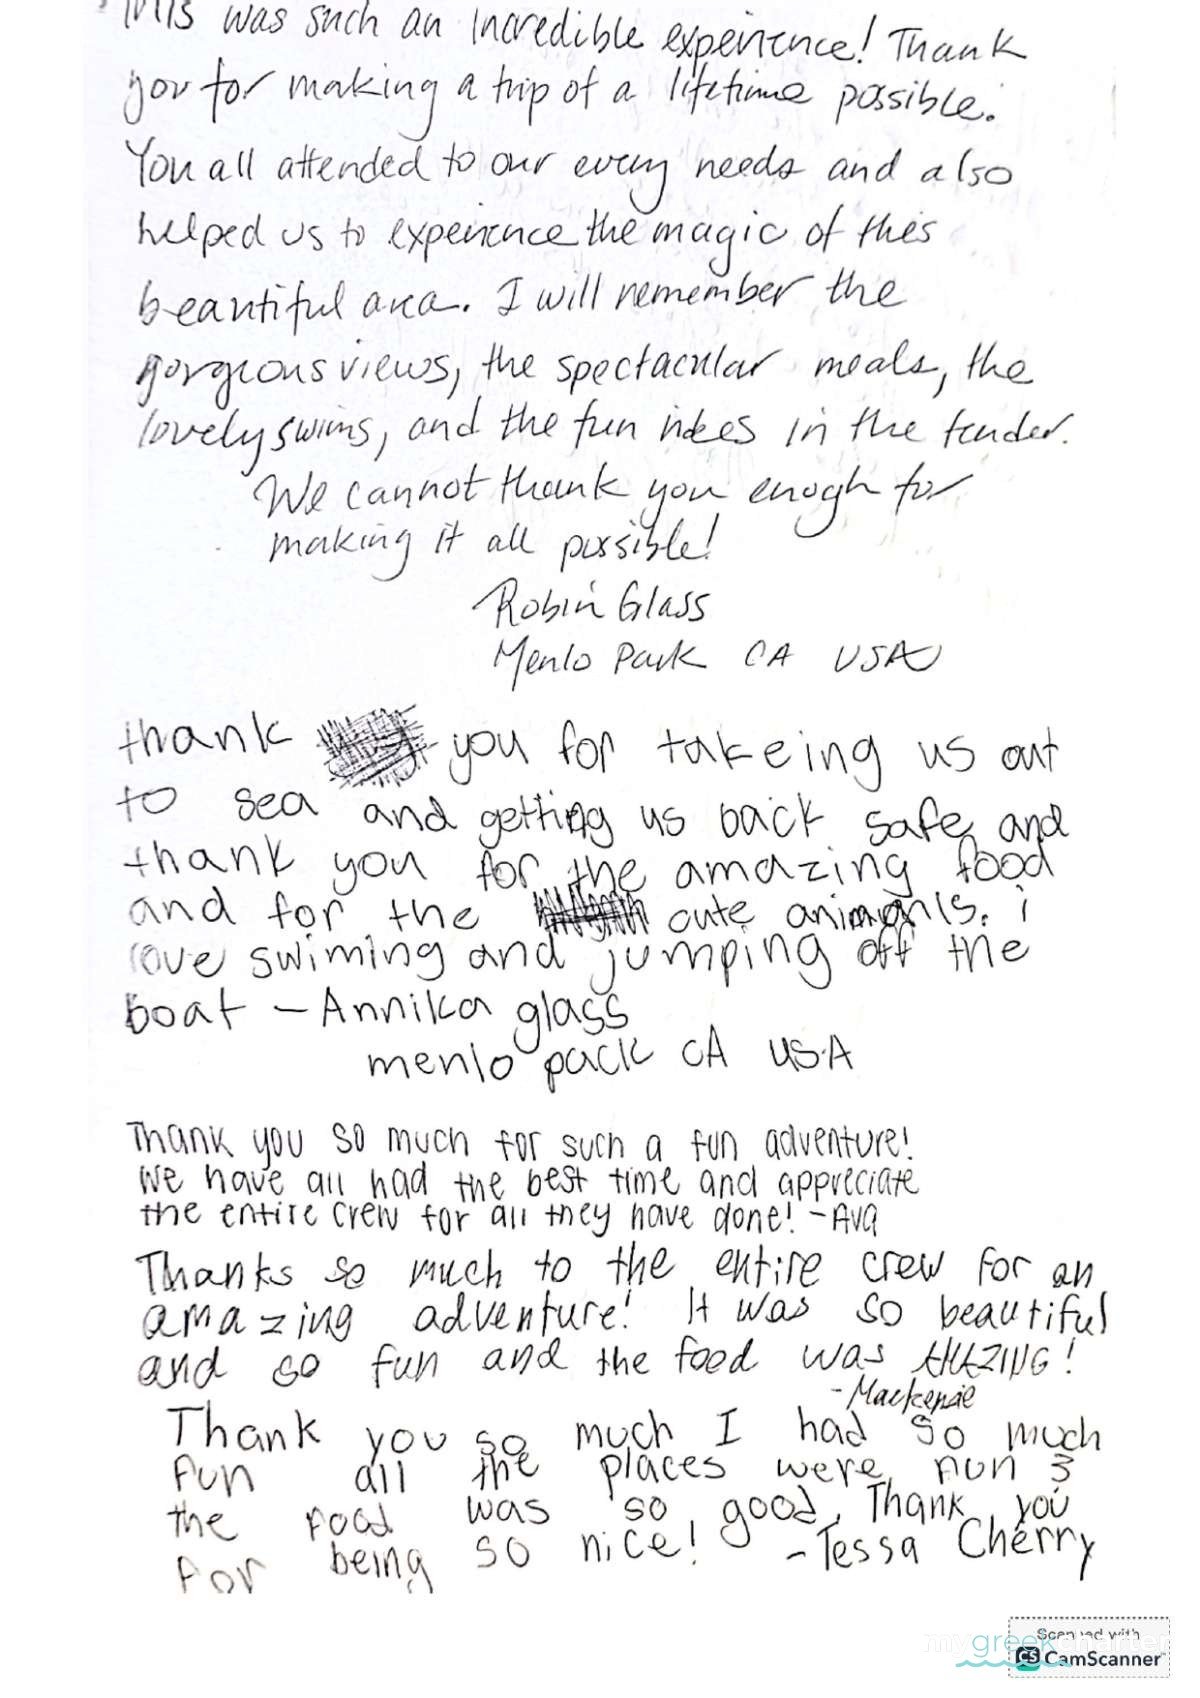 This was such an incredible experience! Thank
you for making a trip of a lifetime possible.
You all attended to our every needs and also
helped us to experience the magic of this
beautiful area. I will remember the
gorgeous views, the spectacular meals, the
lovely swims, and the fun rides in the tender.
We cannot thank you enogh for
making it all possible!
Robin Glass
Menlo Park CA USA
thank you for takeing us out
to sea and getting us back safe and
thank you for the amazing food
and for the cute animanls. i
love swiming and jumping off the
boat - Annika glass
menlo pack CA USA
Thank you so much for such a fun adventure!
We have all had the best time and appreciate
the entire crew for all they have done! -Ava
Thanks so much to the entire crew for an
amazing adventure! It was so beautiful
and so fun and the food was AMAZING!
-Mackenzie
Thank you so much I had so much
fun all the places were fun &
the food was so good. Thank you
for being so nice! -Tessa Cherry
Scanned with
mygreekcharter
CS CamScanner